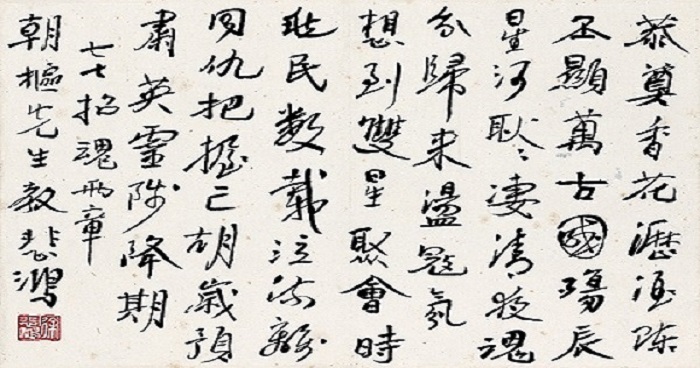 恭奠香花瀝酒陳
丕顯萬古國殤辰
星河耿〻淒清夜魂
兮歸來盪寇氛
想到雙星聚會時
兆民數載泣流離
同仇把握亡胡歲預
肅英靈陟降期
七七招魂兩章
朝樞先生教 悲鴻